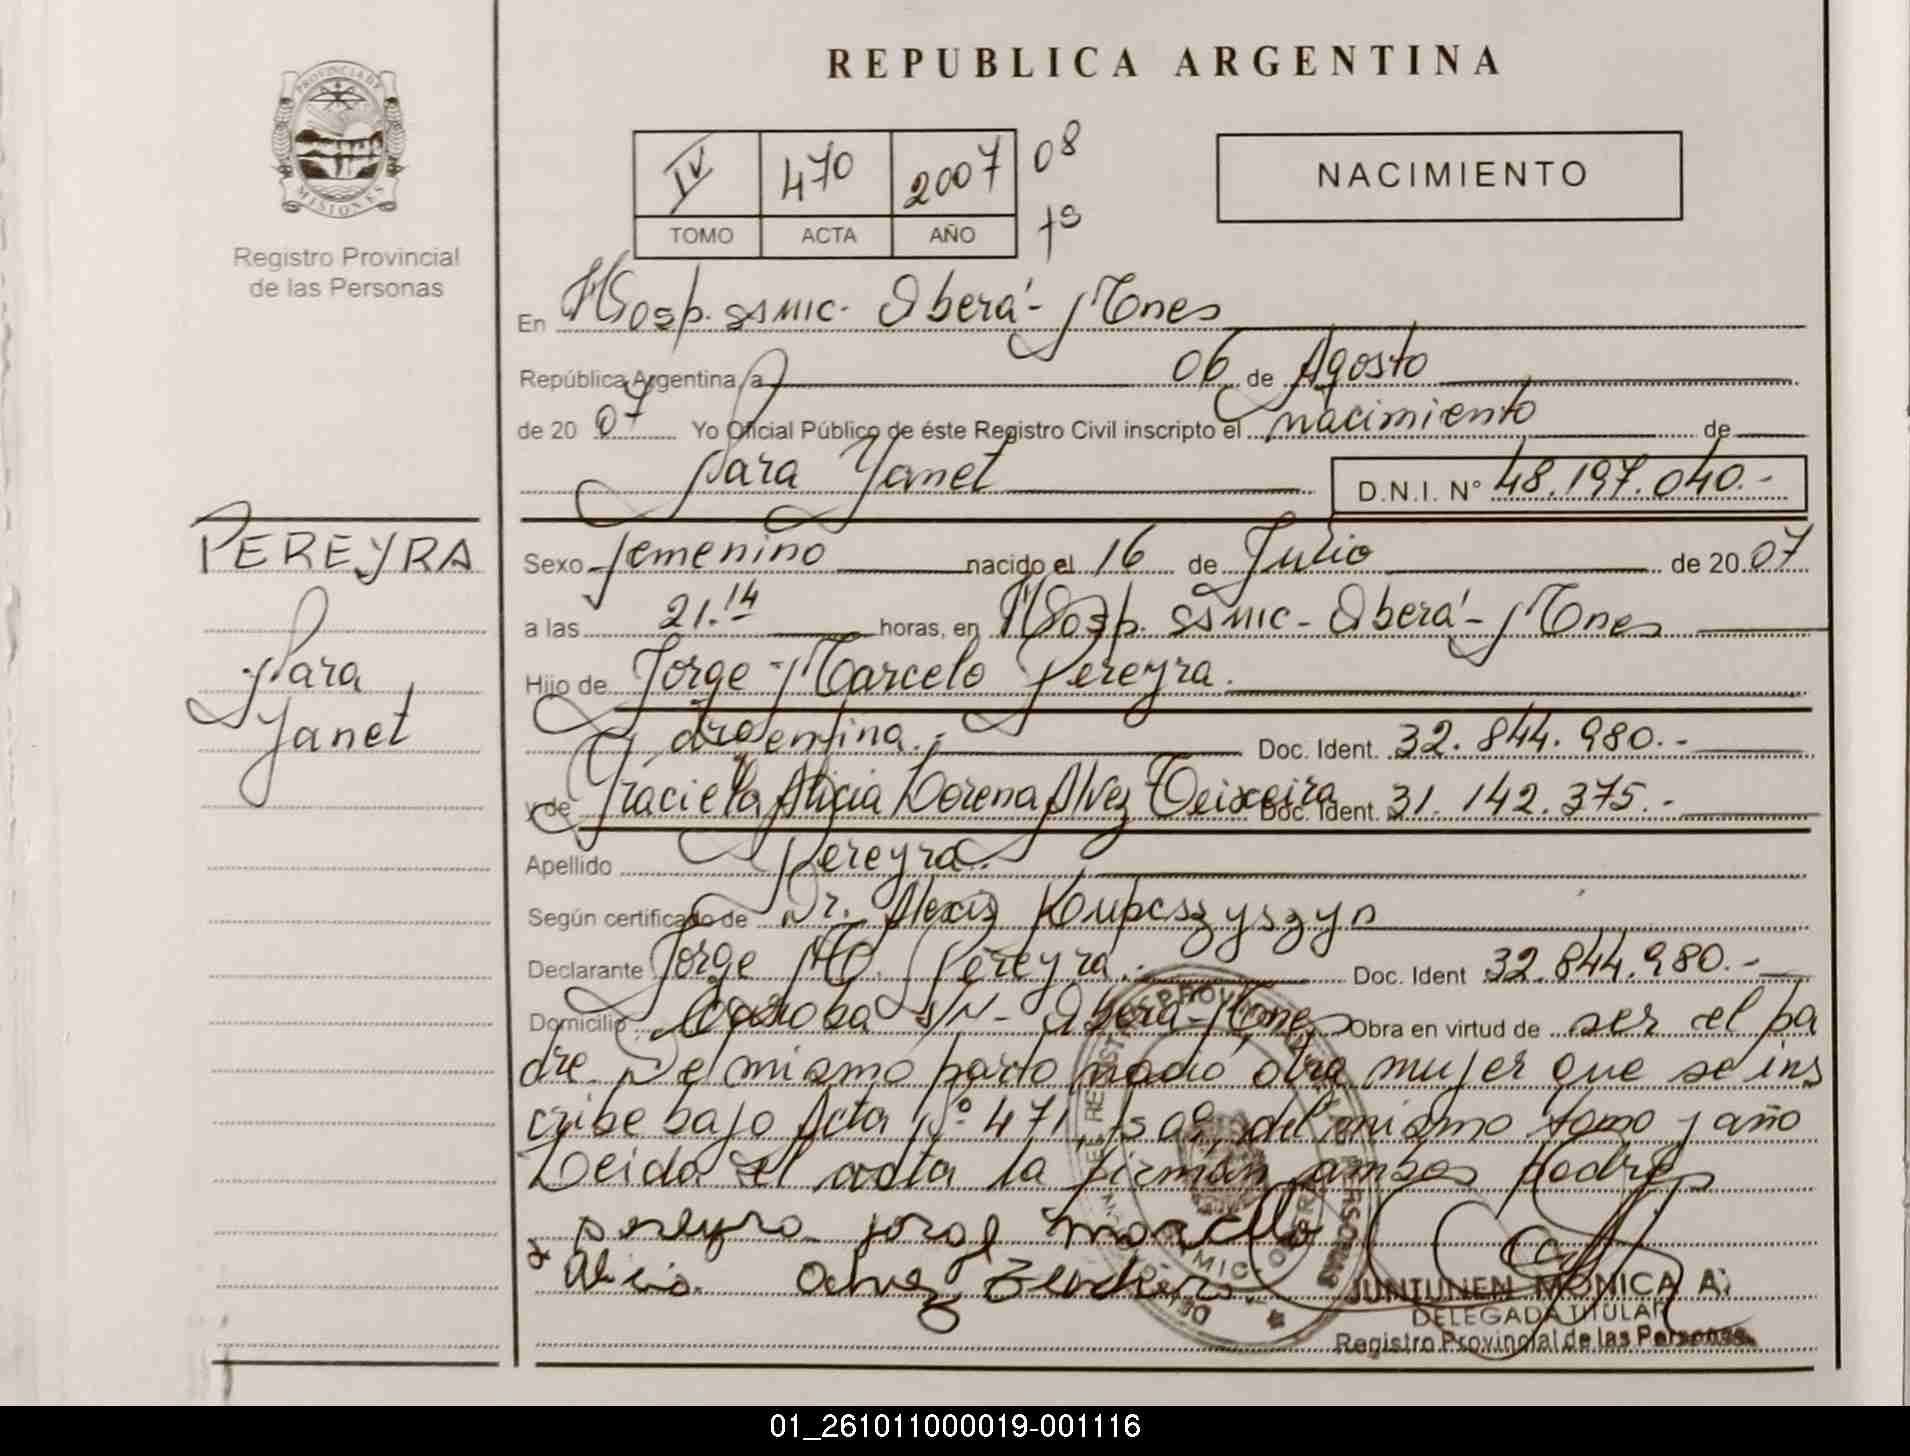 REPUBLICA ARGENTINA
PROVINCIA DE
MISIONES
Registro Provincial
de las Personas
IV 470 2007 08
TOMO ACTA AÑO fs
NACIMIENTO
En Hosp. SSMIC. Oberá - Mnes
República Argentina, a 06 de Agosto
de 2007 Yo Oficial Público de éste Registro Civil inscripto el nacimiento de
Sara Yanet D.N.I. N° 48.197.040.-
PEREYRA
Sara
Yanet
Sexo femenino nacido el 16 de Julio de 2007
a las 21.14 horas, en Hosp. SSMIC - Oberá - Mnes
Hijo de Jorge Marcelo Pereyra.
argentina.- Doc. Ident. 32.844.980.-
y de Graciela Alicia Lorena Alvez Teixeira Doc. Ident. 31.142.375.-
Apellido Pereyra.
Según certificado de Dr. Alexis
Declarante Jorge Mo. Pereyra.- Doc. Ident 32.844.980.-
Domicilio Cordoba S/N - Oberá - Mnes Obra en virtud de ser el pa
dre. Del mismo parto nacio otra mujer que se ins
cribe bajo Acta N° 471, fs 09, del mismo tomo y año
Leida el acta la firman ambos padres
pereyra jorge marcelo
JUNTUNEN MONICA A.
DELEGADA TITULAR
Registro Provincial de las Personas
01_261011000019-001116